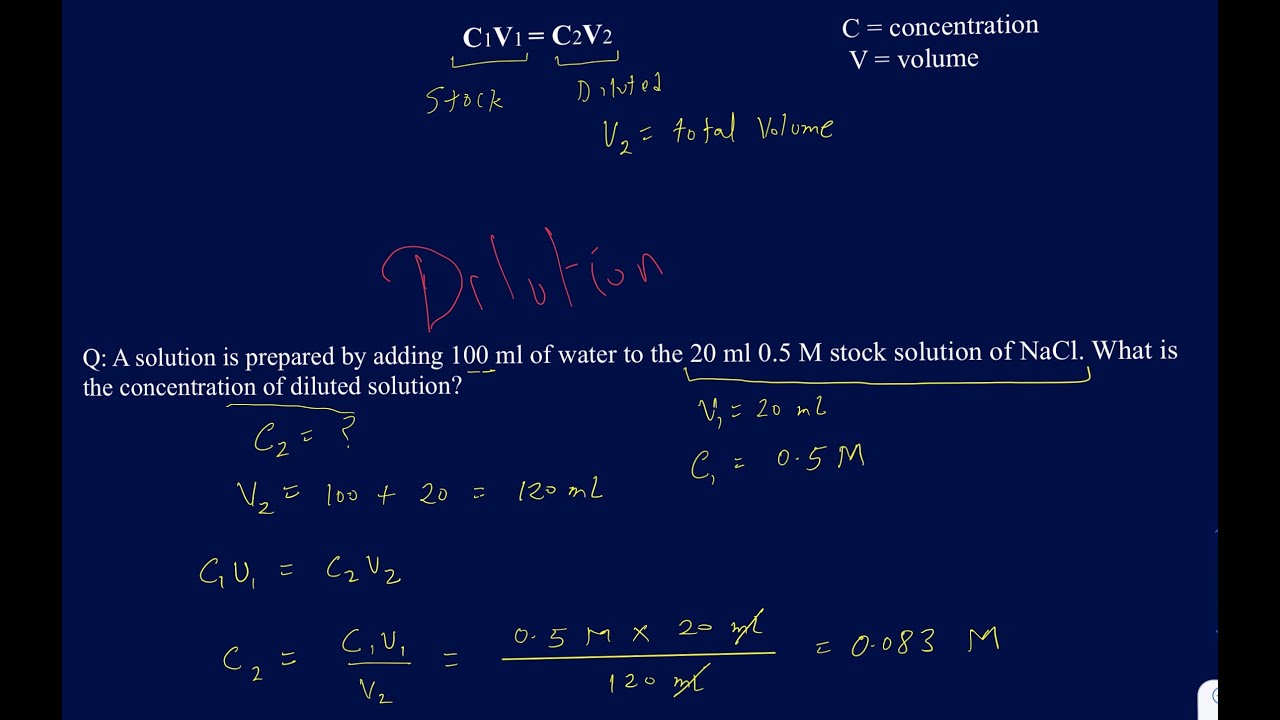 C₁V₁ = C₂V₂
C = concentration
V = volume
Stock
Diluted
V₂ = total Volume
Dilution
Q: A solution is prepared by adding 100 ml of water to the 20 ml 0.5 M stock solution of NaCl. What is
the concentration of diluted solution?
C₂ = ?
V₁ = 20 ml
C₁ = 0.5 M
V₂ = 100 + 20 = 120 ml
C₁V₁ = C₂V₂
C₂ = C₁V₁ / V₂ = 0.5 M × 20 ml / 120 ml = 0.083 M